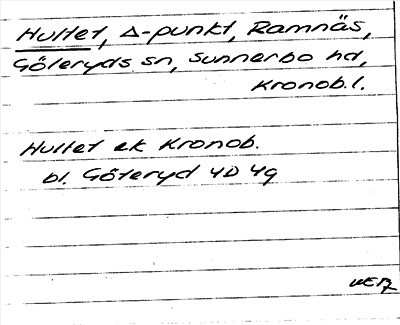 Hultet, Δ-punkt, Ramnäs,
Göteryds sn, Sunnerbo hd,
Kronob.l.
Hultet ek Kronob.
bl. Göteryd 4D 4g